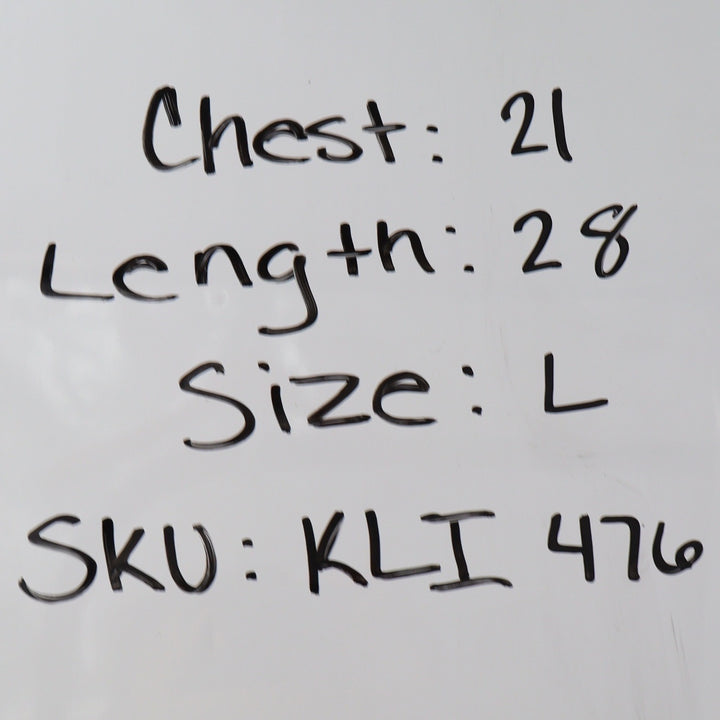 Chest: 21
Length: 28
Size: L
SKU: KLI 476